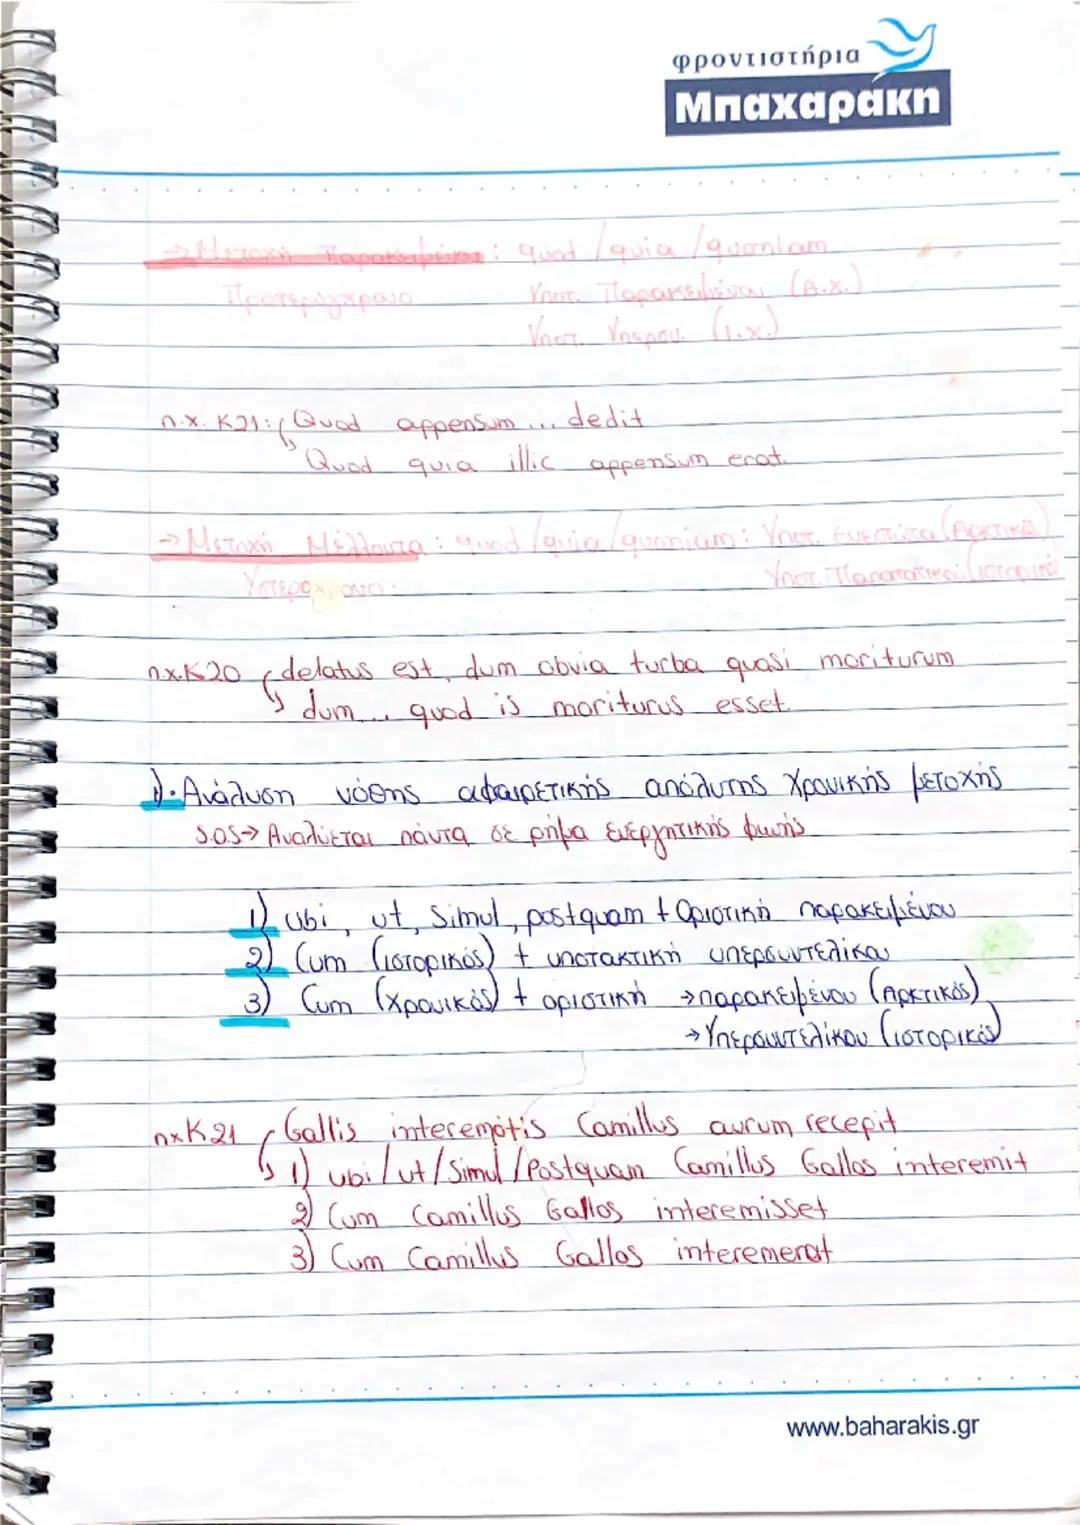 φροντιστήρια
Μπαχαράκη
→ Μετοχή Παρακειμένου: quod/quia/quoniam
Προτερόχρονο Υποτ. Παρακειμένου (Α.Χ.)
Υποτ. Υπερσυ. (Ι.Χ.)
π.χ. Κ21: Quod appensum ... dedit
Quod quia illic appensum erat.
→ Μετοχή Μέλλοντα: quod/quia/quoniam: Υποτ. Ενεστώτα (Αρκτικό)
Υστερόχρονο: Υποτ. Παρατατικού (ιστορικό)
π.χ. Κ20 delatus est, dum obvia turba quasi moriturum
dum... quod is moriturus esset
1)· Ανάλυση νόθης αφαιρετικής απόλυτης χρονικής μετοχής
S.O.S → Αναλύεται πάντα σε ρήμα ενεργητικής φωνής
1) ubi, ut, Simul, postquam + Οριστική παρακειμένου
2) Cum (ιστορικός) + υποτακτική υπερσυντελίκου
3) Cum (χρονικός) + οριστική → παρακειμένου (Αρκτικός)
→ Υπερσυντελίκου (ιστορικός)
πχ Κ21 Gallis interemptis Camillus aurum recepit
1) ubi/ut/Simul/Postquam Camillus Gallos interemit
2) Cum Camillus Gallos interemisset
3) Cum Camillus Gallos interemerat
www.baharakis.gr